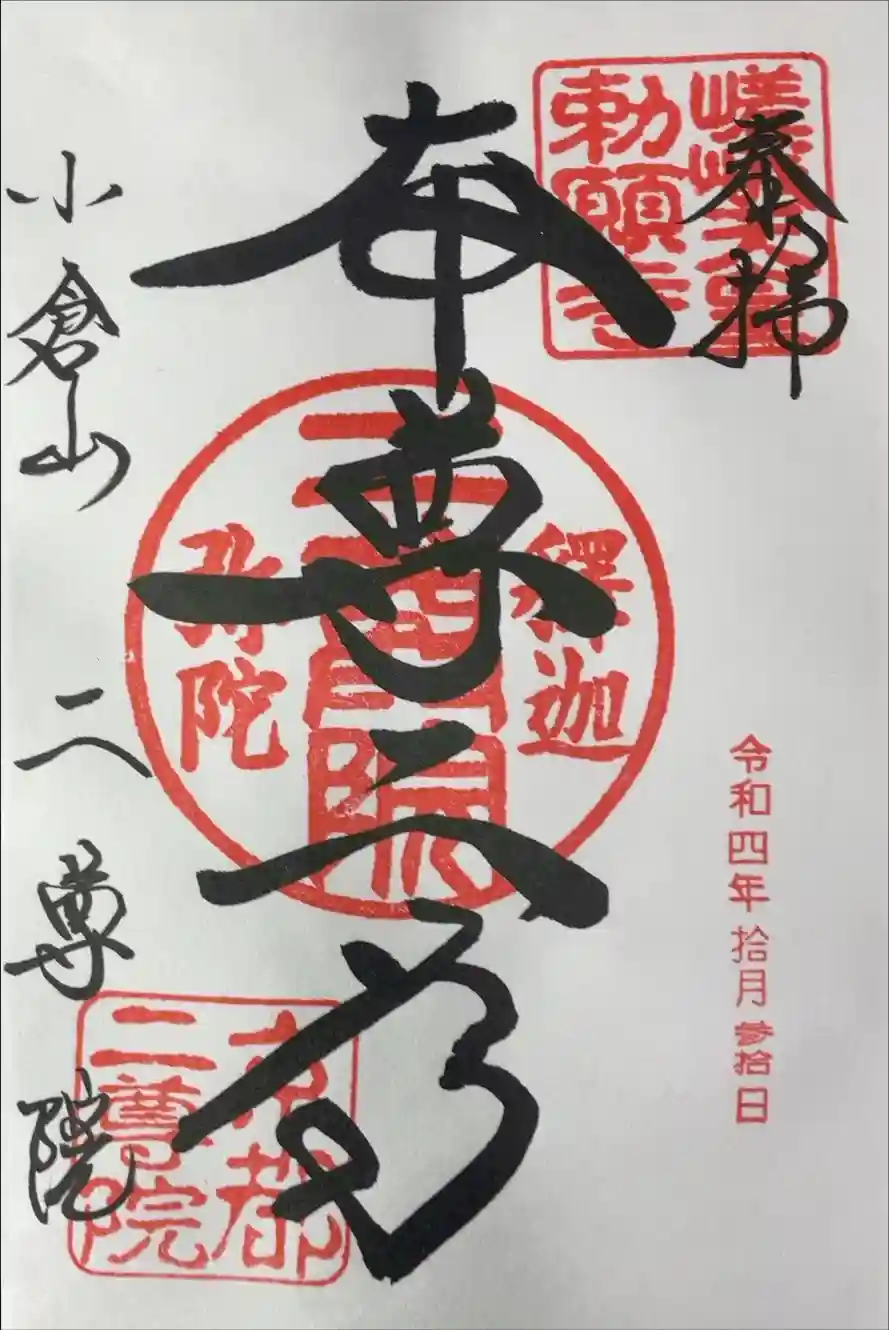 奉拝
嵯峨天皇
勅願寺
令和四年拾月参拾日
本尊二尊
釋迦
二尊院
弥陀
小倉山 二尊院
京都
二尊院